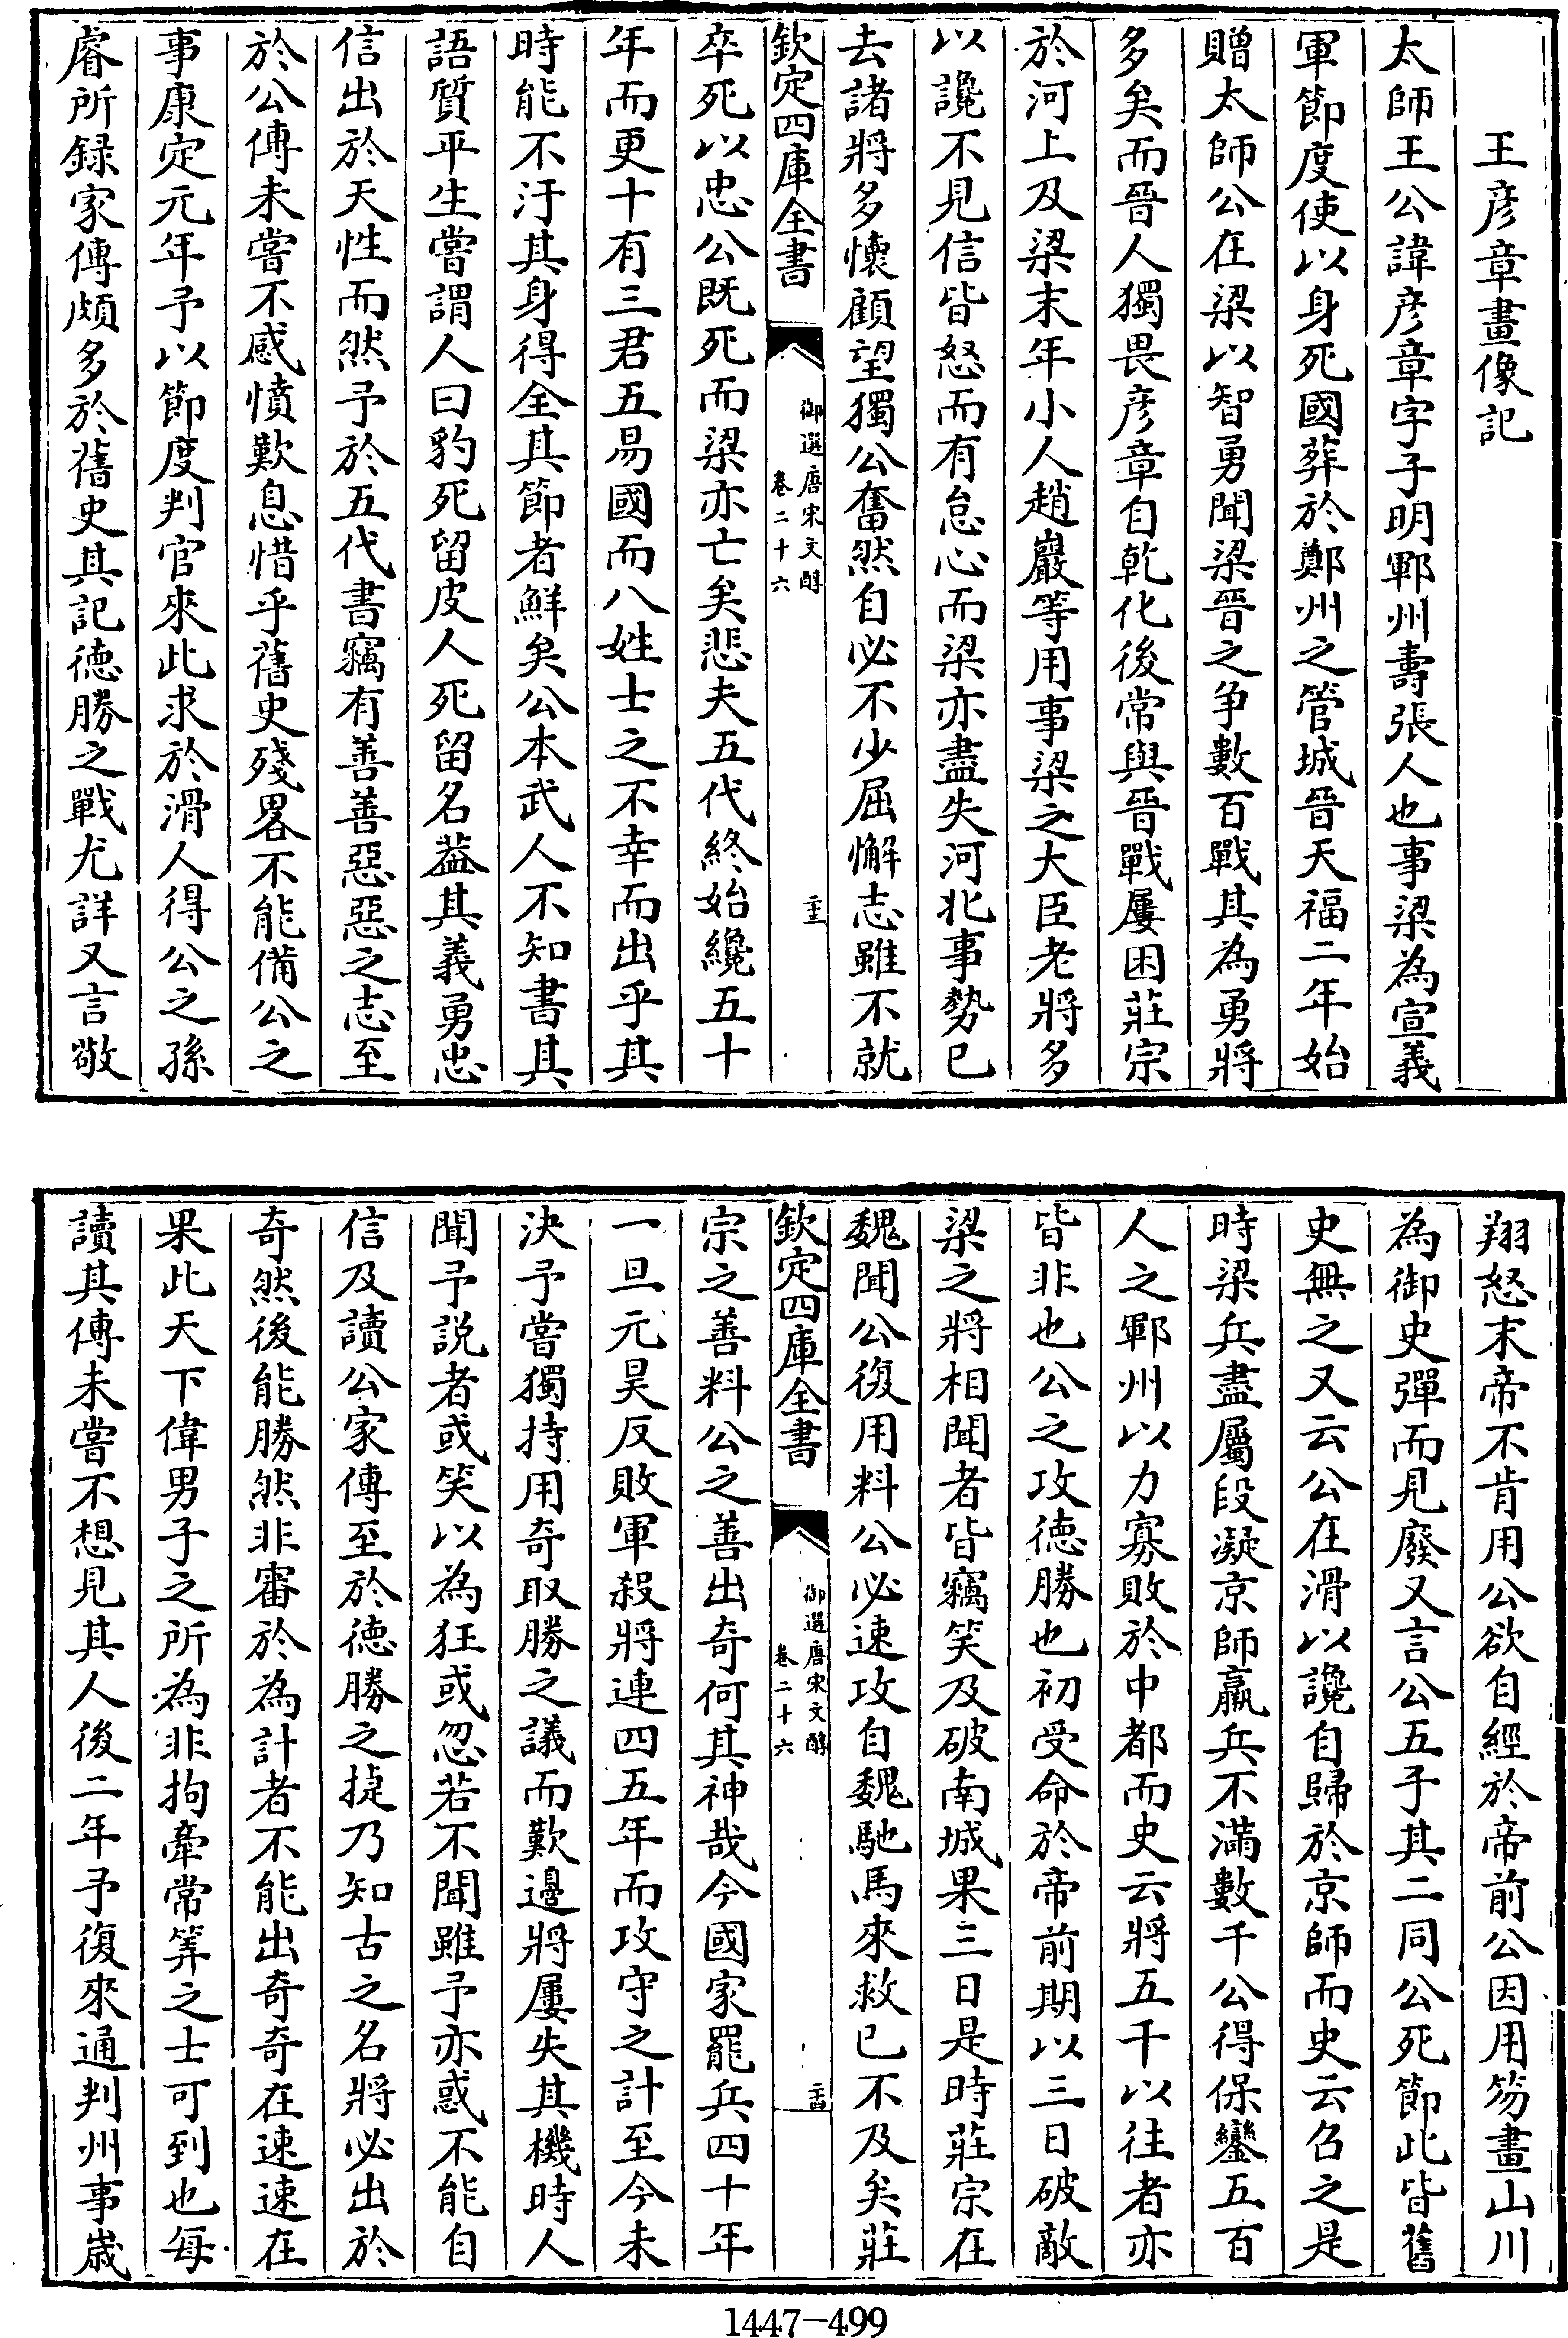 王彦章畫像記
太師王公諱彦章字子明鄆州壽張人也事梁為宣義
軍節度使以身死國葬於鄭州之管城晉天福二年始
贈太師公在梁以智勇聞梁晉之争數百戰其為勇將
多矣而晉人獨畏彦章自乾化後常與晉戰屢困莊宗
於河上及梁末年小人趙巖等用事梁之大臣老將多
以讒不見信皆怒而有怠心而梁亦盡失河北事勢已
去諸將多懷顧望獨公奮然自必不少屈懈志雖不就
欽定四庫全書
御選唐宋文醇
卷二十六
二十三
卒死以忠公既死而梁亦亡矣悲夫五代終始纔五十
年而更十有三君五易國而八姓士之不幸而出乎其
時能不汙其身得全其節者鮮矣公本武人不知書其
語質平生嘗謂人曰豹死留皮人死留名葢其義勇忠
信出於天性而然予於五代書竊有善善惡惡之志至
於公傳未嘗不感憤歎息惜乎舊史殘畧不能備公之
事康定元年予以節度判官來此求於滑人得公之孫
睿所録家傳頗多於舊史其記德勝之戰尤詳又言敬
翔怒末帝不肯用公欲自經於帝前公因用笏畫山川
為御史彈而見廢又言公五子其二同公死節此皆舊
史無之又云公在滑以讒自歸於京師而史云召之是
時梁兵盡屬段凝京師羸兵不滿數千公得保鑾五百
人之鄆州以力寡敗於中都而史云將五千以往者亦
皆非也公之攻德勝也初受命於帝前期以三日破敵
梁之將相聞者皆竊笑及破南城果三日是時莊宗在
魏聞公復用料公必速攻自魏馳馬來救已不及矣莊
欽定四庫全書
御選唐宋文醇
卷二十六
二十四
宗之善料公之善出奇何其神哉今國家罷兵四十年
一旦元昊反敗軍殺將連四五年而攻守之計至今未
決予嘗獨持用奇取勝之議而歎邊將屢失其機時人
聞予説者或笑以為狂或忽若不聞雖予亦惑不能自
信及讀公家傳至於德勝之捷乃知古之名將必出於
奇然後能勝然非審於為計者不能出奇奇在速速在
果此天下偉男子之所為非拘牽常筭之士可到也每
讀其傳未嘗不想見其人後二年予復來通判州事歲
1447-499